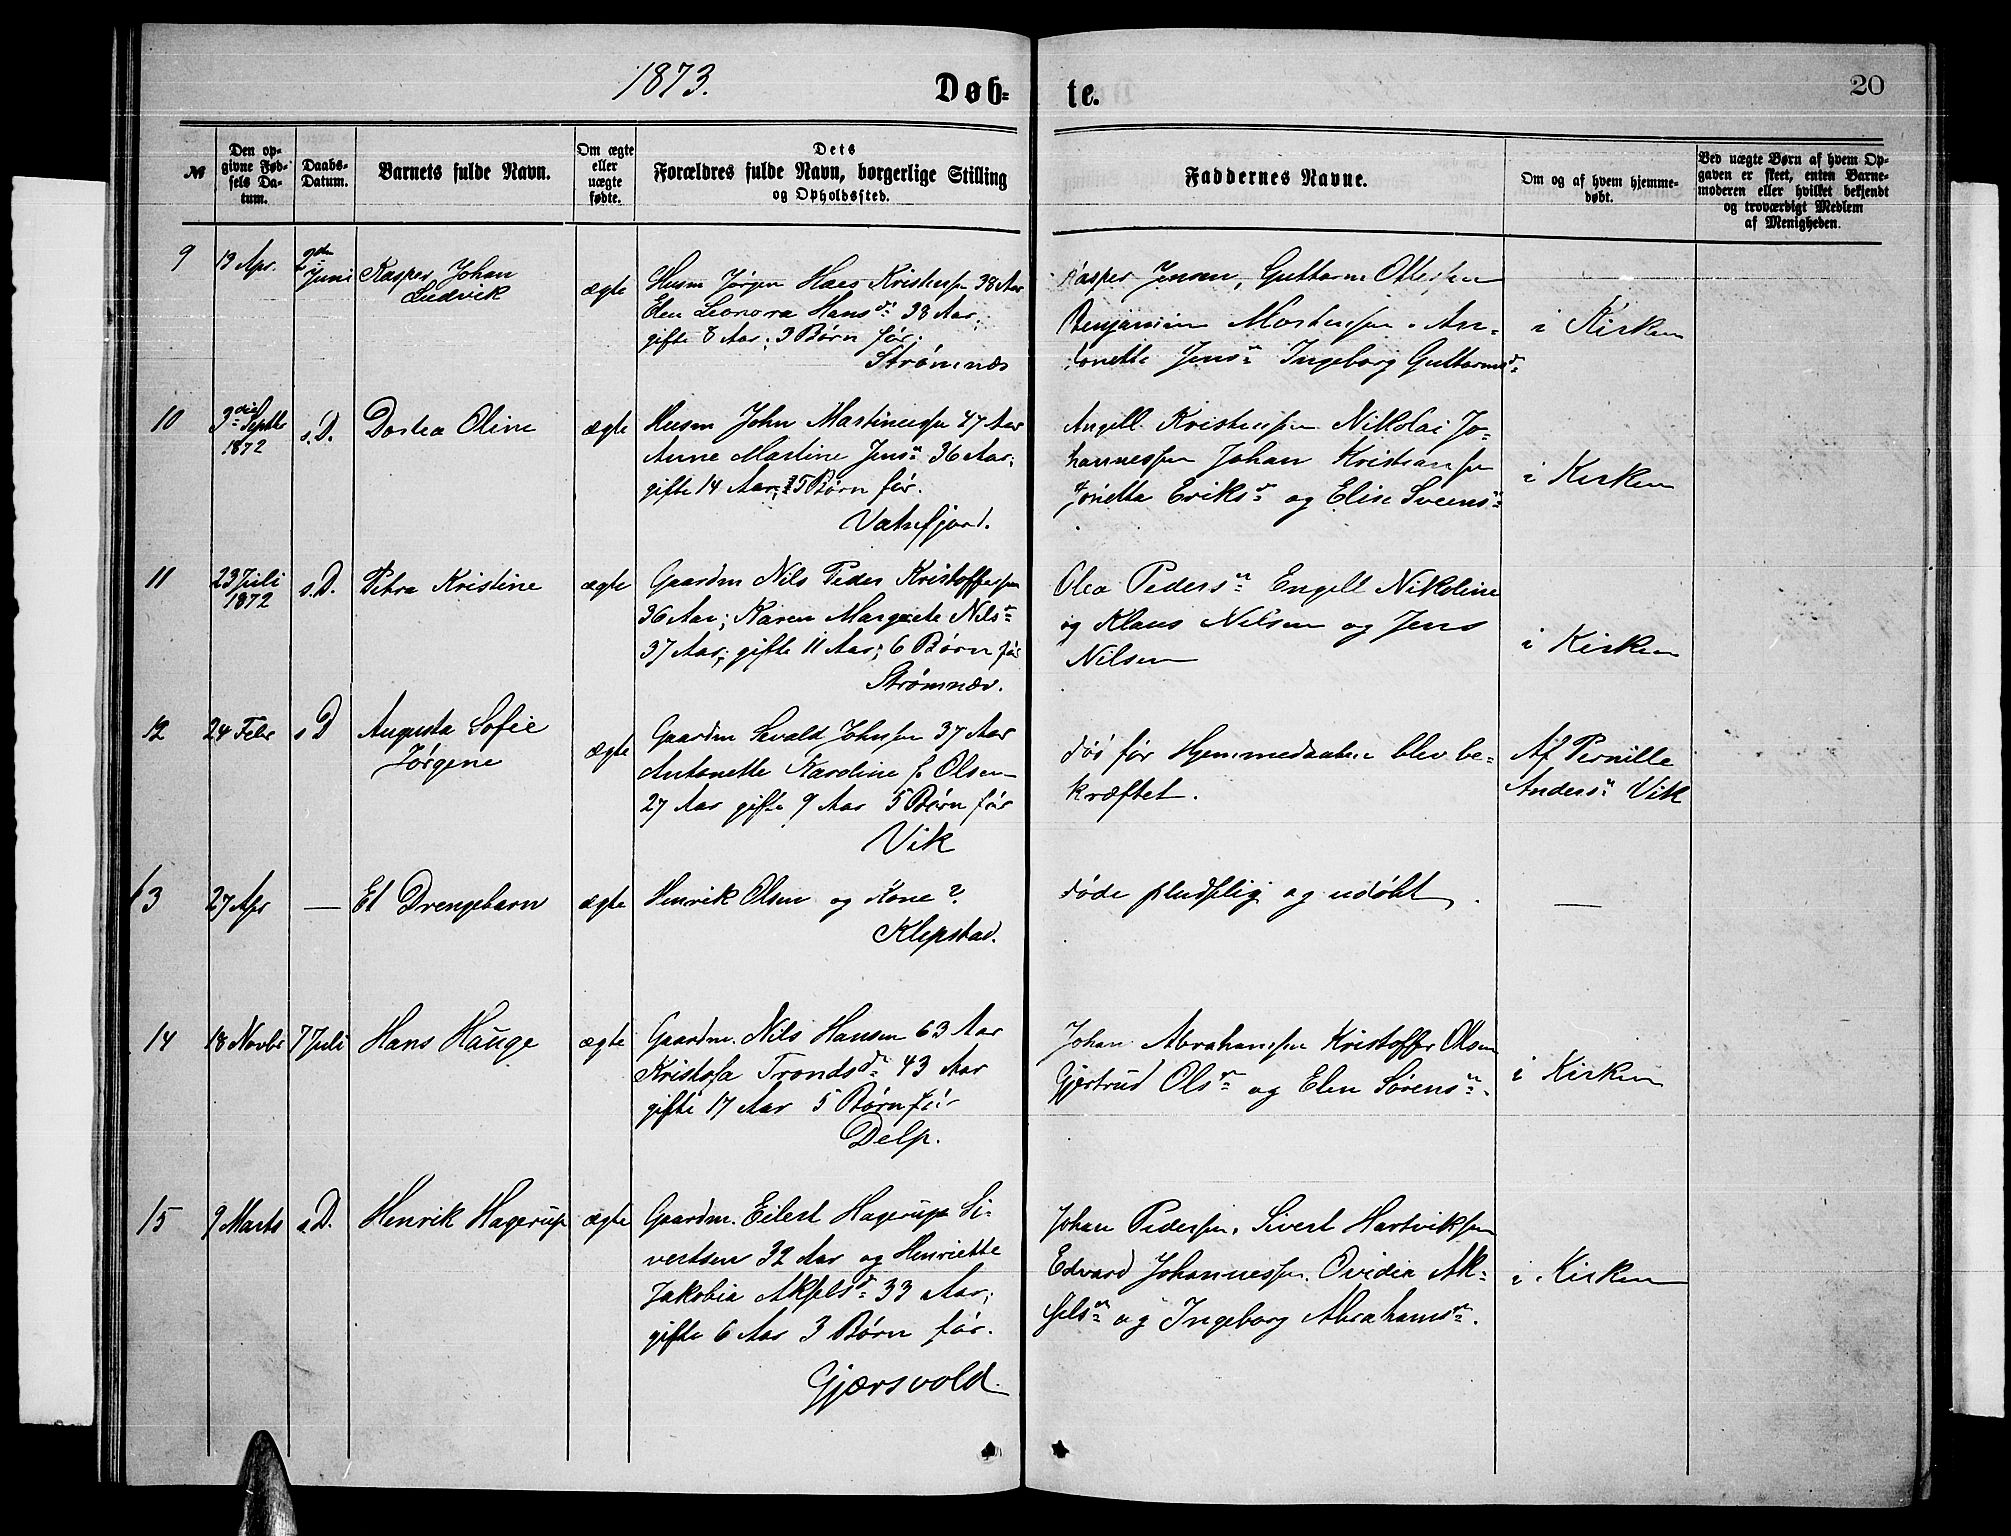 1873.
Døb-
te.
20
№
Den op-
givne Fød-
sels Da-
tum.
Daabs-
Datum.
Barnets fulde Navn.
Om ægte
eller
uægte
fødte.
Dets
Forældres fulde Navn, borgerlige Stilling
og Opholdssted.
Faddernes Navne.
Om og af hvem hjemme-
døbt.
Ved uægte Børn af hvem Op-
gaven er skeet, enten Barne-
moderen eller hvilket bekjendt
og troværdigt Medlem
af Menigheden.
9
13 Apr.
2den
Juni
Kasper Johan
Ludvik
ægte
Husm Jørgen Hans Kristensen 38 Aar
Elen Leonora Hansdr 38 Aar,
gifte 8 Aar; 3 Børn før.
Strømnæs
Kasper Jensen, Guttorm Ottesen
Benjamin Mortensen, An-
tonette Jensdr Ingeborg Guttormsdr
i Kirken
10
3die Septbr
1872
s.D.
Dortea Oline
ægte
Husm John Martinussen 47 Aar
Anne Martine Jensdr 36 Aar,
gifte 14 Aar; 5 Børn før.
Vatnfjord.
Angell Kristensen Nikolai Jo-
hannessen Johan Kristiansen
Jonetta Eriksdr og Elise Sveensdr
i Kirken
11
23 Juli
1872
s.D.
Petra Kristine
ægte
Gaardm Nils Peder Kristoffersen
36 Aar; Karen Margrete Nilsdr
37 Aar; gifte 11 Aar; 6 Børn før
Strømnæs.
Olea Pedersdr Engell Nikoline
og Klaus Nilsen og Jens
Nilsen
i Kirken
12
24 Febr
s D
Augusta Sofie
Jørgene
ægte
Gaardm Sevald Johnsen 37 Aar
Antonette Karoline f. Olsen
27 Aar gifte 9 Aar 5 Børn før
Vik
døs før Hjemmedaaben blev be-
kræftet.
Af Pernille
Andersdr Vik
13
27 Apr
—
Et Drengebarn
ægte
Henrik Olsen og Kone?
Klepstad.
døde pludselig og udøbt.
—
14
18 Novbr
7 Juli
Hans Hauge
ægte
Gaardm. Nils Hansen 63 Aar
Kristofa Trondsdr 43 Aar
gifte 17 Aar 5 Børn før
Delp.
Johan Abrahamsen Kristoffer Olsen
Gjertrud Olsdr og Elen Sørensdr.
i Kirken
15
9 Marts
s D.
Henrik Hagerup
ægte
Gaardm. Eilert Hagerup Si-
vertsen 32 Aar og Henriette
Jakobia Akselsdr 33 Aar;
gifte 6 Aar 3 Børn før.
Gjærsvold.
Johan Pedersen, Sivert Hartviksen
Edvard Johannessen, Ovidia Ak-
selsdr og Ingeborg Abrahamsdr.
i Kirken